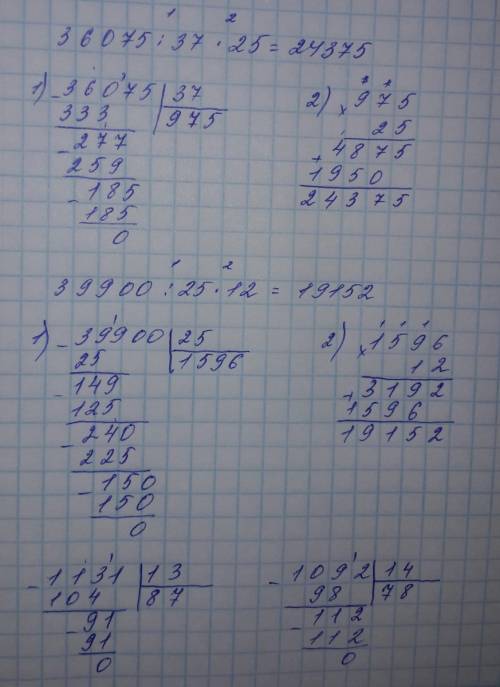 1 2
36075 : 37 · 25 = 24375
1) - 36075 | 37
333 | 975
- 277
259
- 185
185
0
2) × 975
25
+ 4875
1950
24375
1 2
39900 : 25 · 12 = 19152
1) - 39900 | 25
25 | 1596
- 149
125
- 240
225
- 150
150
0
2) × 1596
12
+ 3192
1596
19152
- 1131 | 13
104 | 87
- 91
91
0
- 1092 | 14
98 | 78
- 112
112
0